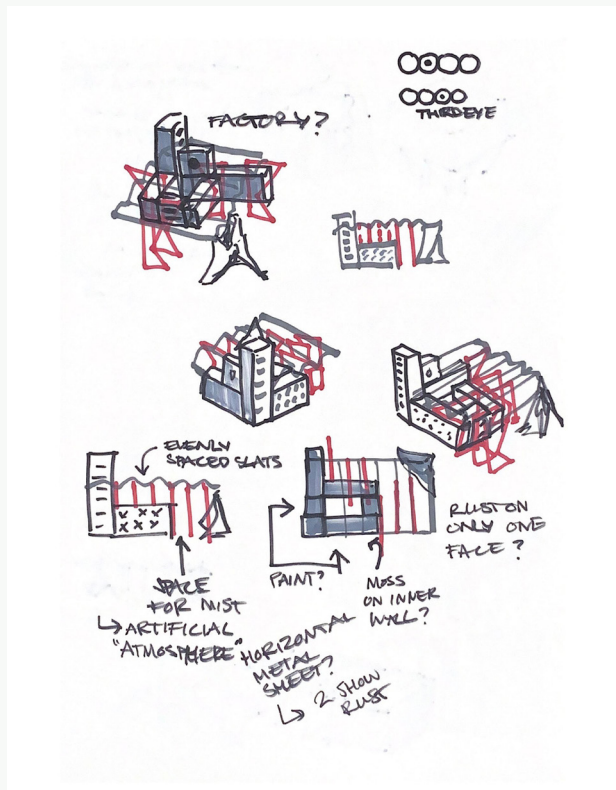 THIRDEYE
FACTORY?
EVENLY
SPACED SLATS
RUST ON
ONLY ONE
FACE?
SPACE
FOR MIST
↳ ARTIFICIAL
"ATMOSPHERE"
PAINT?
MOSS
ON INNER
WALL?
HORIZONTAL
METAL
SHEET?
↳ 2 SHOW
RUST